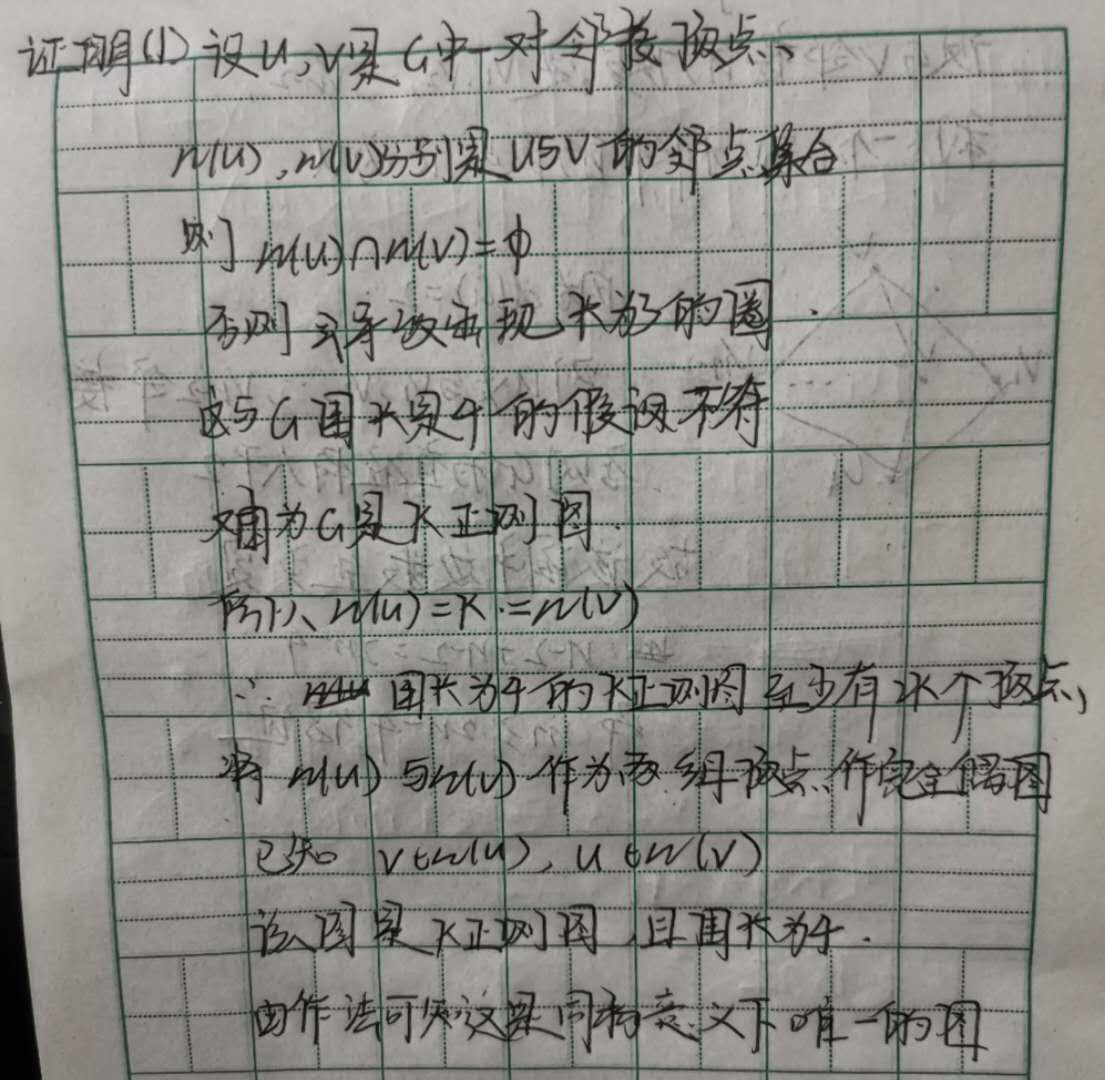 证明(1) 设u,v是G中一对邻接顶点、
n(u),n(v)分别是u与v的邻点集合
则 n(u)∩n(v)=ф
否则 导致出现长为3的圈.
这与G围长是4的假设不符
又因为G是K正则图.
所以、n(u)=K.=n(v)
∴ 围长为4的K正则图至少有2K个顶点,
将n(u)与n(v)作为两组顶点、作完全偶图
已知 v∈n(u),u∈n(v)
该图是K正则图,且围长为4.
由作法可知这是同构意义下唯一的图